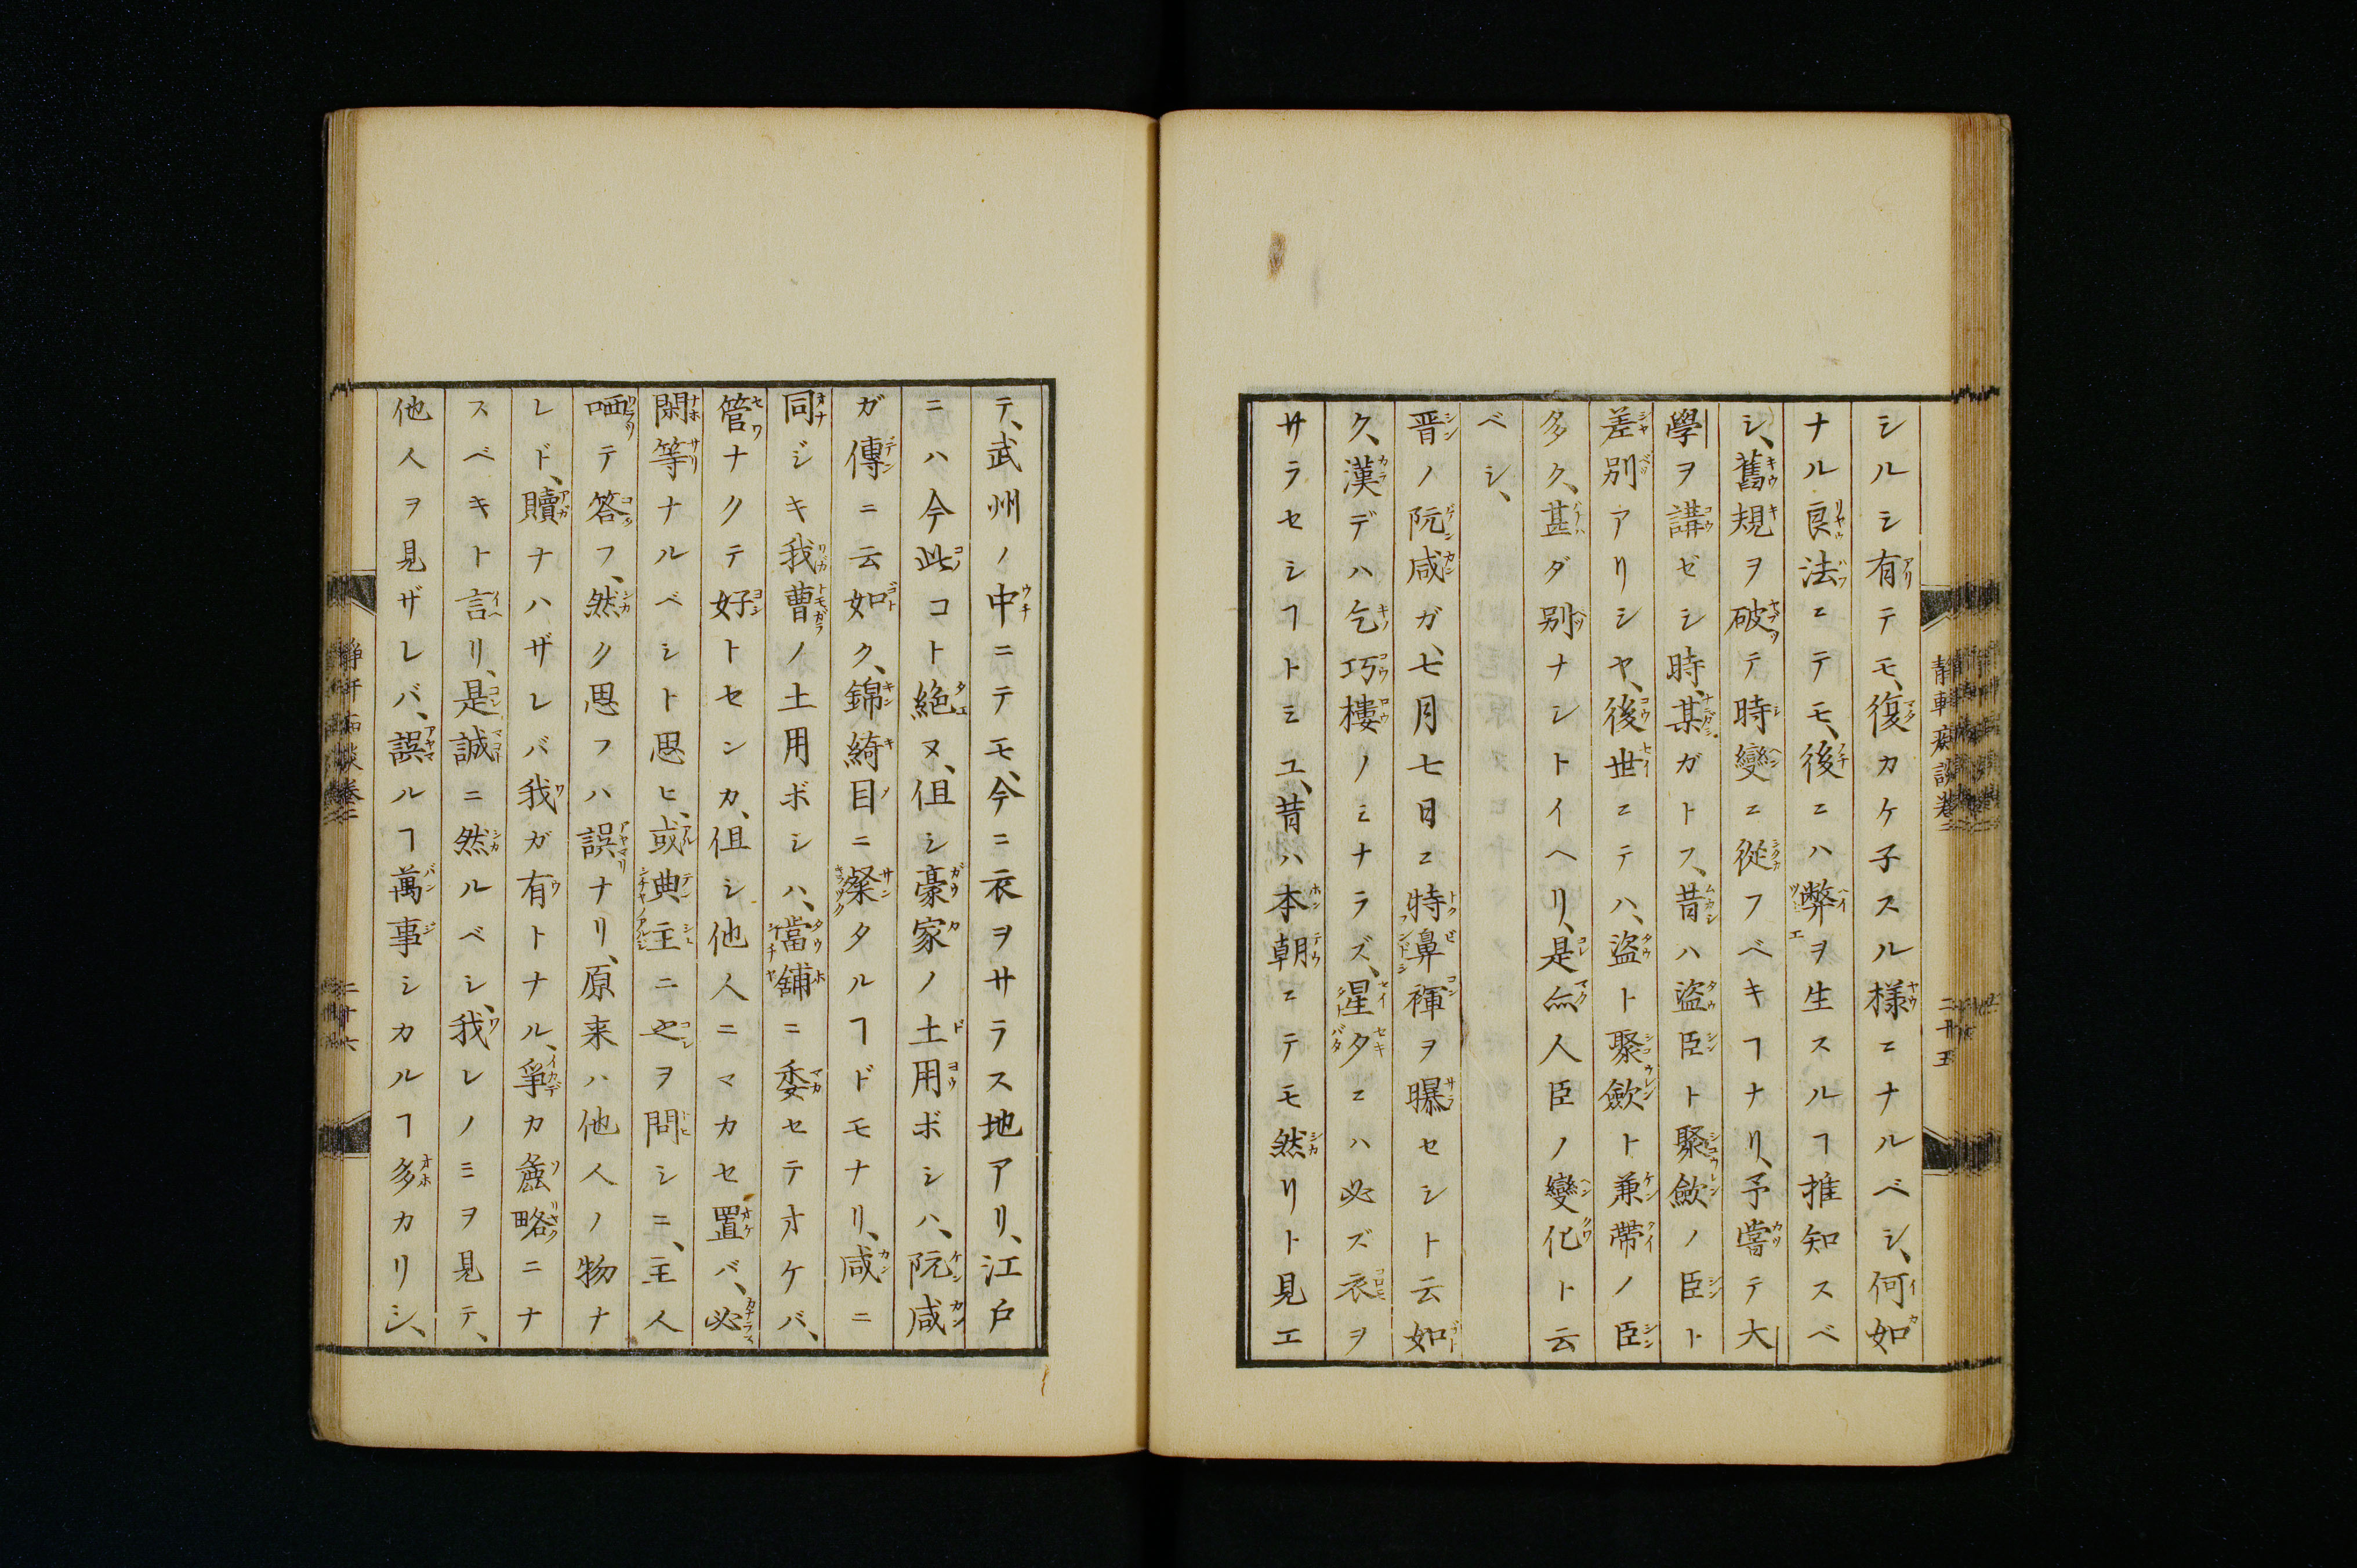 シルシ有テモ、復カケ子スル様ニナルベシ、何如
ナル良法ニテモ、後ニハ弊ヲ生スルヿ推知スベ
シ、舊規ヲ破テ時變ニ從フベキヿナリ、予嘗テ大
學ヲ講ゼシ時、某ガトフ、昔ハ盗臣ト聚斂ノ臣ト
差別アリシヤ、後世ニテハ、盗ト聚斂ト兼帶ノ臣
多ク、甚ダ別ナシトイヘリ、是亦人臣ノ變化ト云
ベシ、
晋ノ阮咸ガ、七月七日ニ犢鼻褌ヲ曝セシト云如
ク、漢デハ乞巧樓ノミナラズ、星夕ニハ必ズ衣ヲ
サラセシヿトミユ、昔ハ本朝ニテモ然リト見エ
テ、武州ノ中ニテモ、今ニ衣ヲサラス地アリ、江戸
ニハ今此コト絶ヌ、但シ豪家ノ土用ボシハ、阮咸
ガ傳ニ云如ク、錦綺目ニ粲タルヿドモナリ、咸ニ
同ジキ我曹ノ土用ボシハ、當舖ニ委セテオケバ、
管ナクテ好トセンカ、但シ他人ニマカセ置バ、必
閑等ナルベシト思ヒ、或典主ニ之ヲ問シニ、主人
哂テ答フ、然ク思フハ誤ナリ、原来ハ他人ノ物ナ
レド、贖ナハザレバ我ガ有トナル、爭カ麁略ニナ
スベキト言リ、是誠ニ然ルベシ、我レノミヲ見テ、
他人ヲ見ザレバ、誤ルヿ萬事シカルヿ多カリシ、